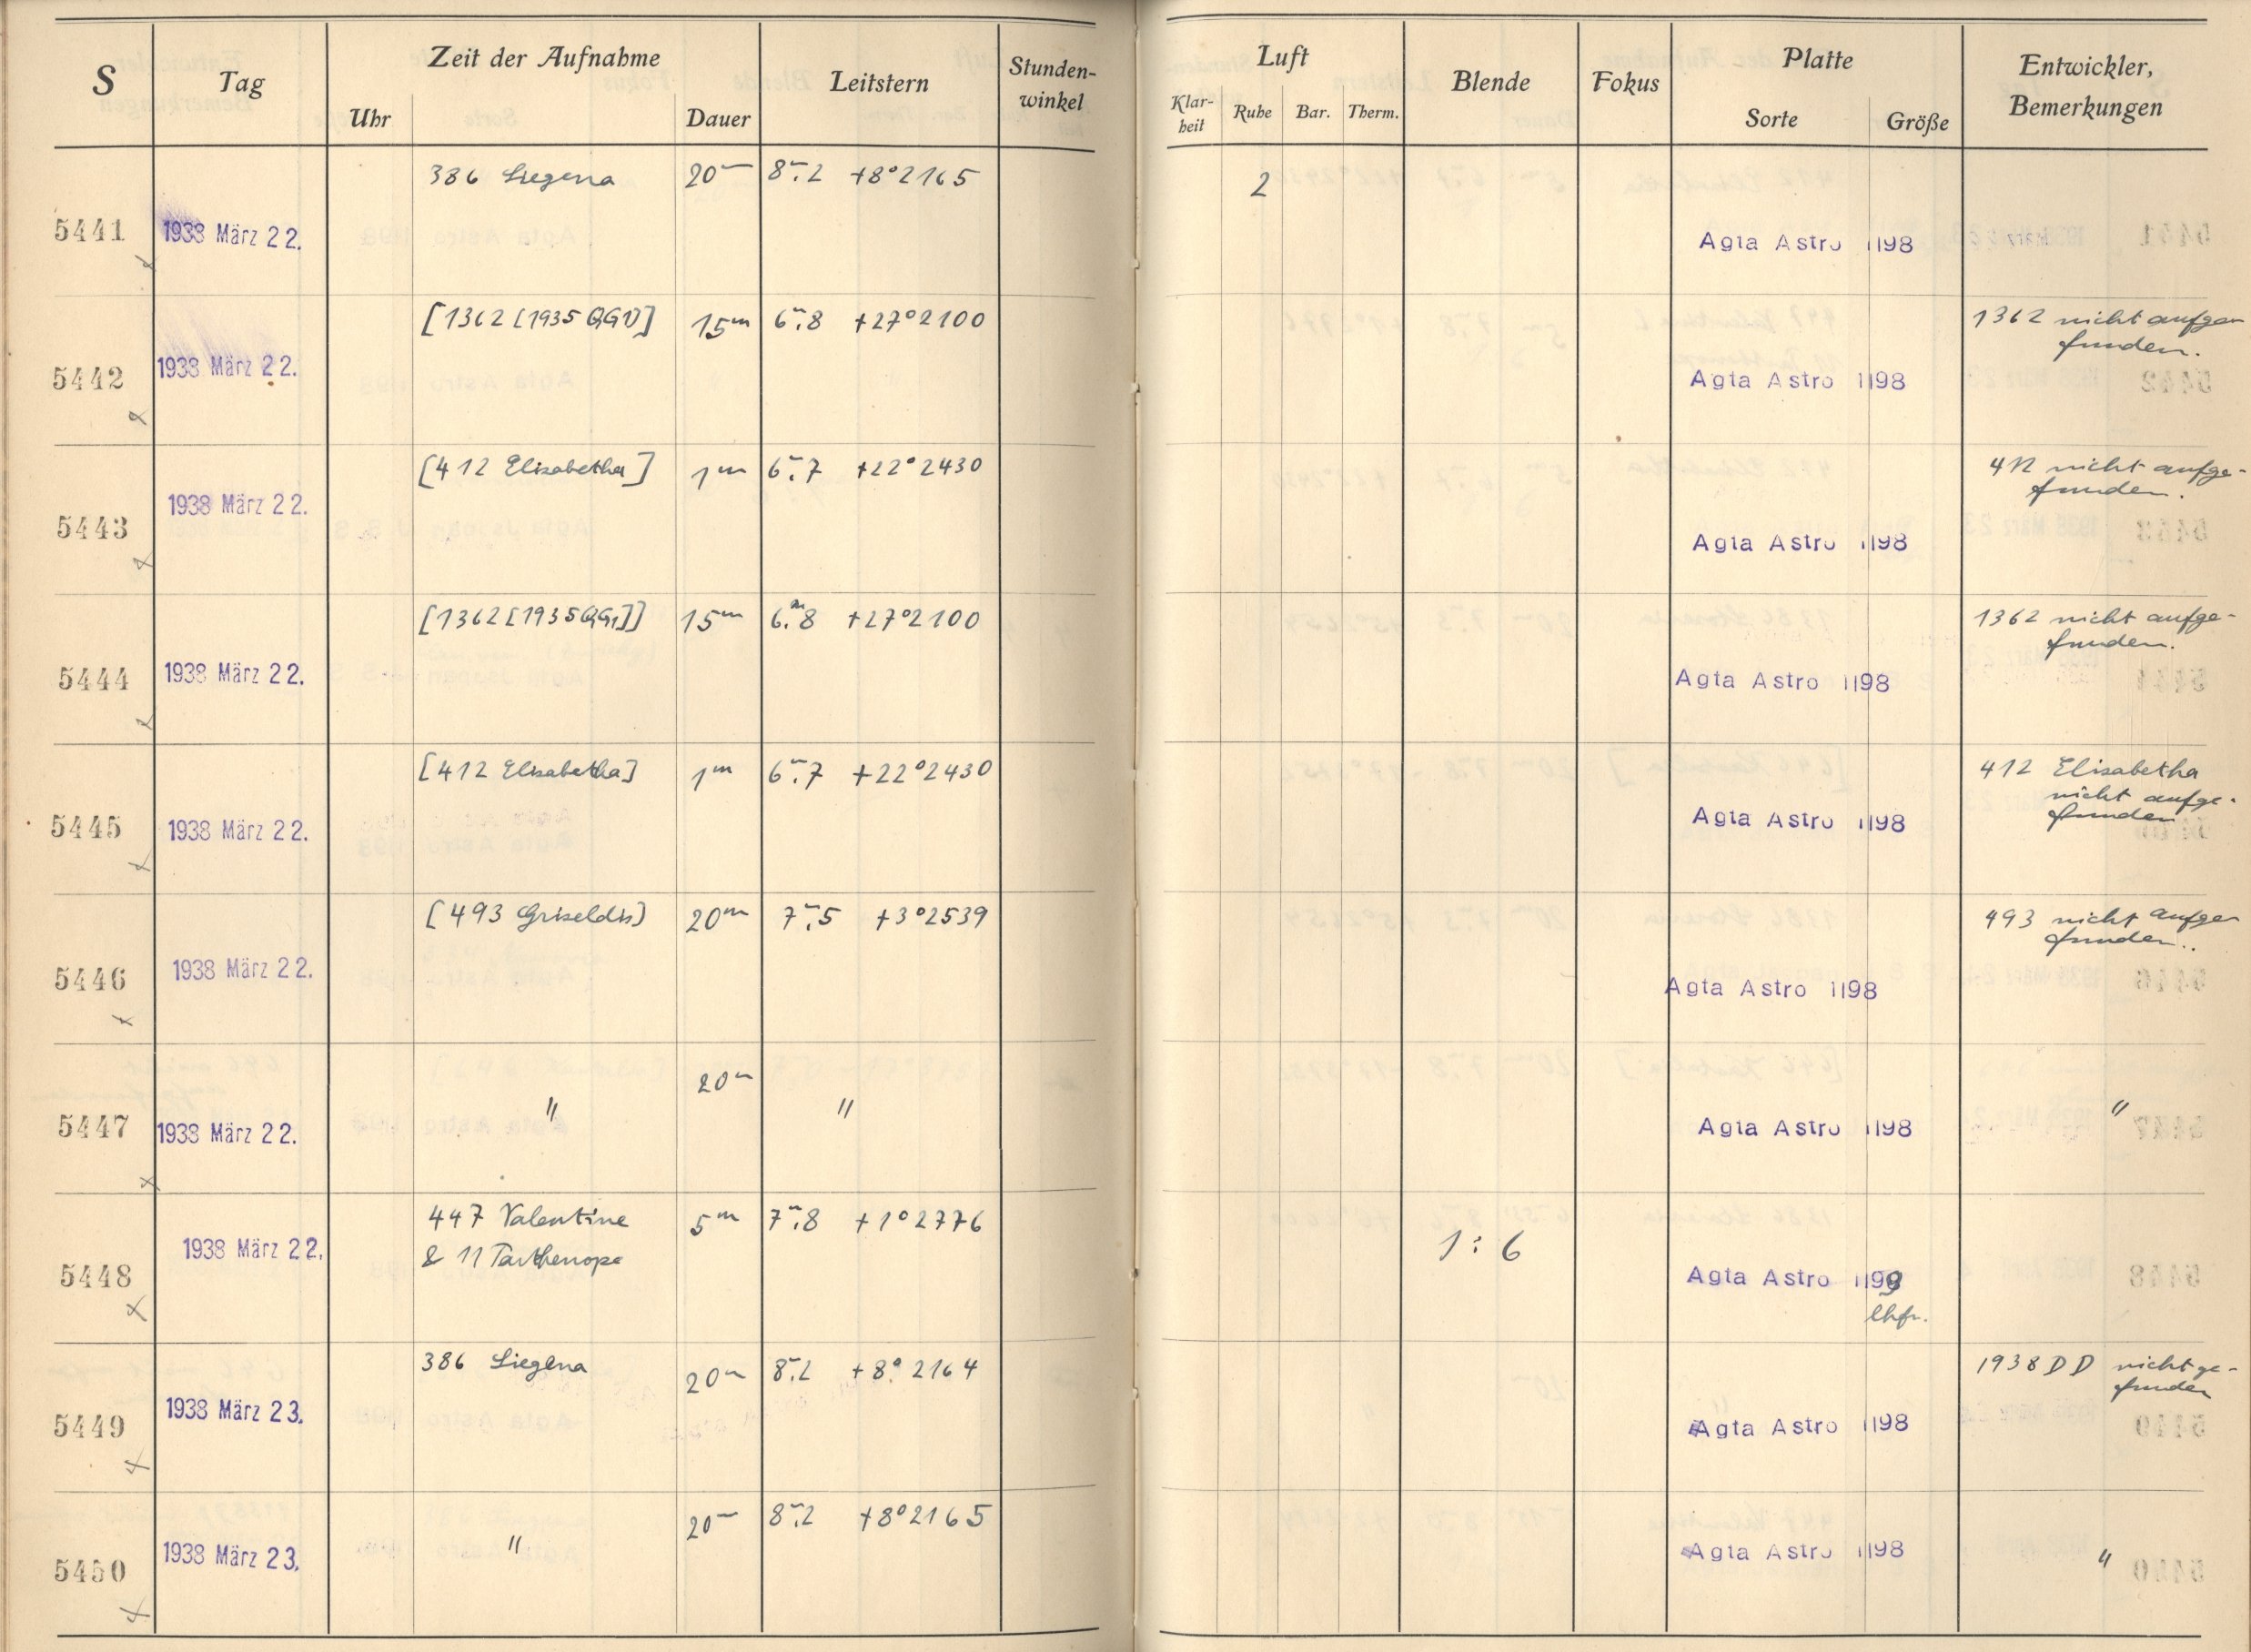 S Tag Zeit der Aufnahme Leitstern Stunden-
winkel
Uhr Dauer
Luft Blende Fokus Platte Entwickler,
Bemerkungen
Klar-
heit Ruhe Bar. Therm. Sorte Größe
386 Liegena 20m 8m.2 +8°2165 2
5441 1938 März 22. Agfa Astro 1198
[1362 [1935 QG1)] 15m 6m.8 +27°2100 1362 nicht aufge-
funden.
5442 1938 März 22. Agfa Astro 1198
[412 Elisabetha] 1m 6m.7 +22°2430 412 nicht aufge-
funden.
5443 1938 März 22. Agfa Astro 1198
[1362 [1935QG1]] 15m 6m.8 +27°2100 1362 nicht aufge-
funden.
5444 1938 März 22. Agfa Astro 1198
[412 Elisabetha] 1m 6m.7 +22°2430 412 Elisabetha
nicht aufge-
funden
5445 1938 März 22. Agfa Astro 1198
[493 Griseldis) 20m 7m.5 +3°2539 493 nicht aufge-
funden..
5446 1938 März 22. Agfa Astro 1198
20m
" " "
5447 1938 März 22. Agfa Astro 1198
447 Valentine 5m 7m.8 +1°2776
& 11 Parthenope 1:6
5448 1938 März 22. Agfa Astro 1199
lhfr.
386 Liegena 20m 8m.2 +8°2164 1938 DD nicht ge-
funden
5449 1938 März 23. Agfa Astro 1198
20m 8m.2 +8°2165
" "
5450 1938 März 23. Agfa Astro 1198